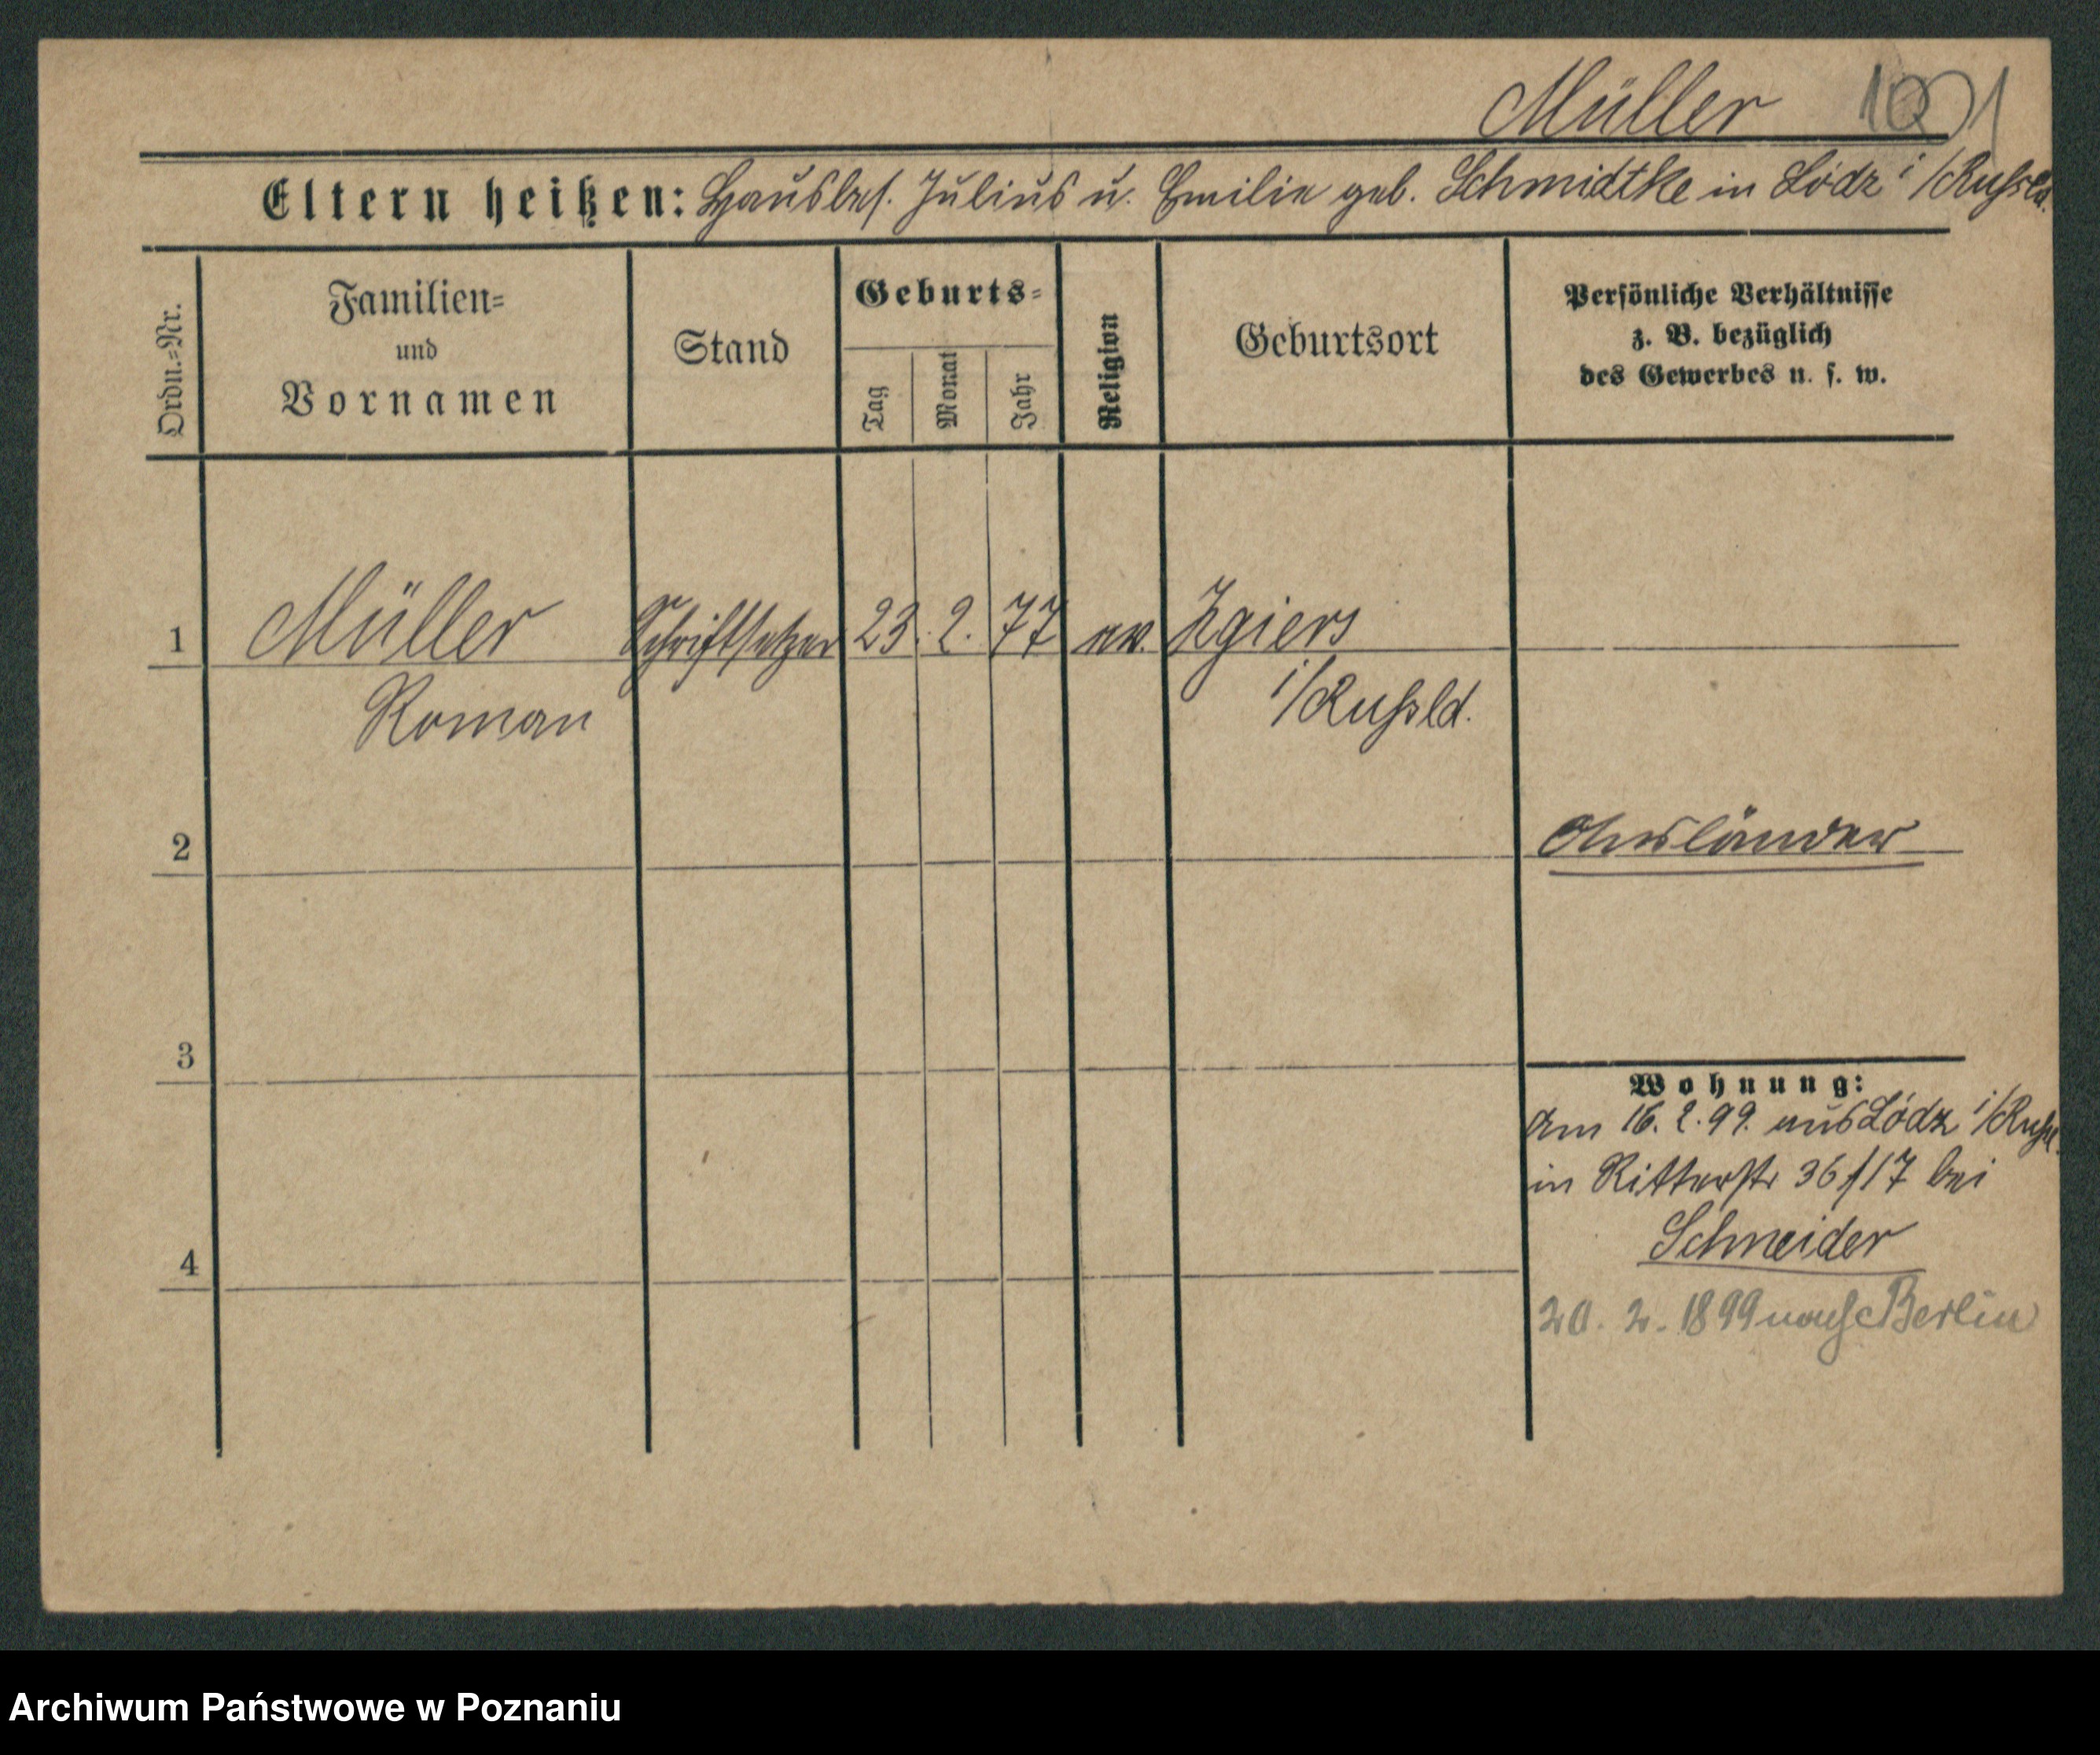 Müller 1091
Eltern heißen: Hausbes. Julius u. Emilie geb. Schmidtke in Lódz i/Russld.
Ordn.=Nr.
Familien=
und
Vornamen
Stand
Geburts=
Tag
Monat
Jahr
Religion
Geburtsort
Persönliche Verhältnisse
z. B. bezüglich
des Gewerbes u. s. w.
1 Müller Schriftsetzer 23. 2. 77 ev. Zgiers
Roman i/Russld.
2 Ausländer
3
Wohnung:
Am 16. 2. 99. aus Lódz i/Russl.
in Ritterstr 36 f/17 bei
4 Schneider
20. 2. 1899 nach Berlin
Archiwum Państwowe w Poznaniu